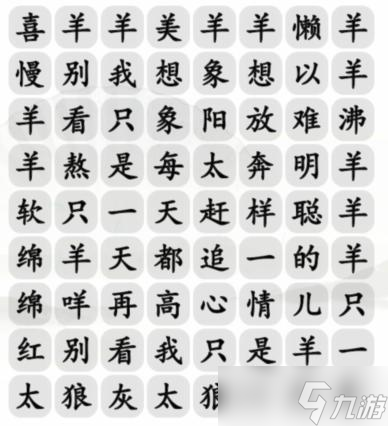 喜羊羊美羊羊懒羊
慢别我想象想以羊
羊看只象阳放难沸
羊熬是每太奔明羊
软只一天赶样聪羊
绵羊天都追一的羊
绵咩再高心情儿只
红别看我只是羊一
太狼灰太狼
九游